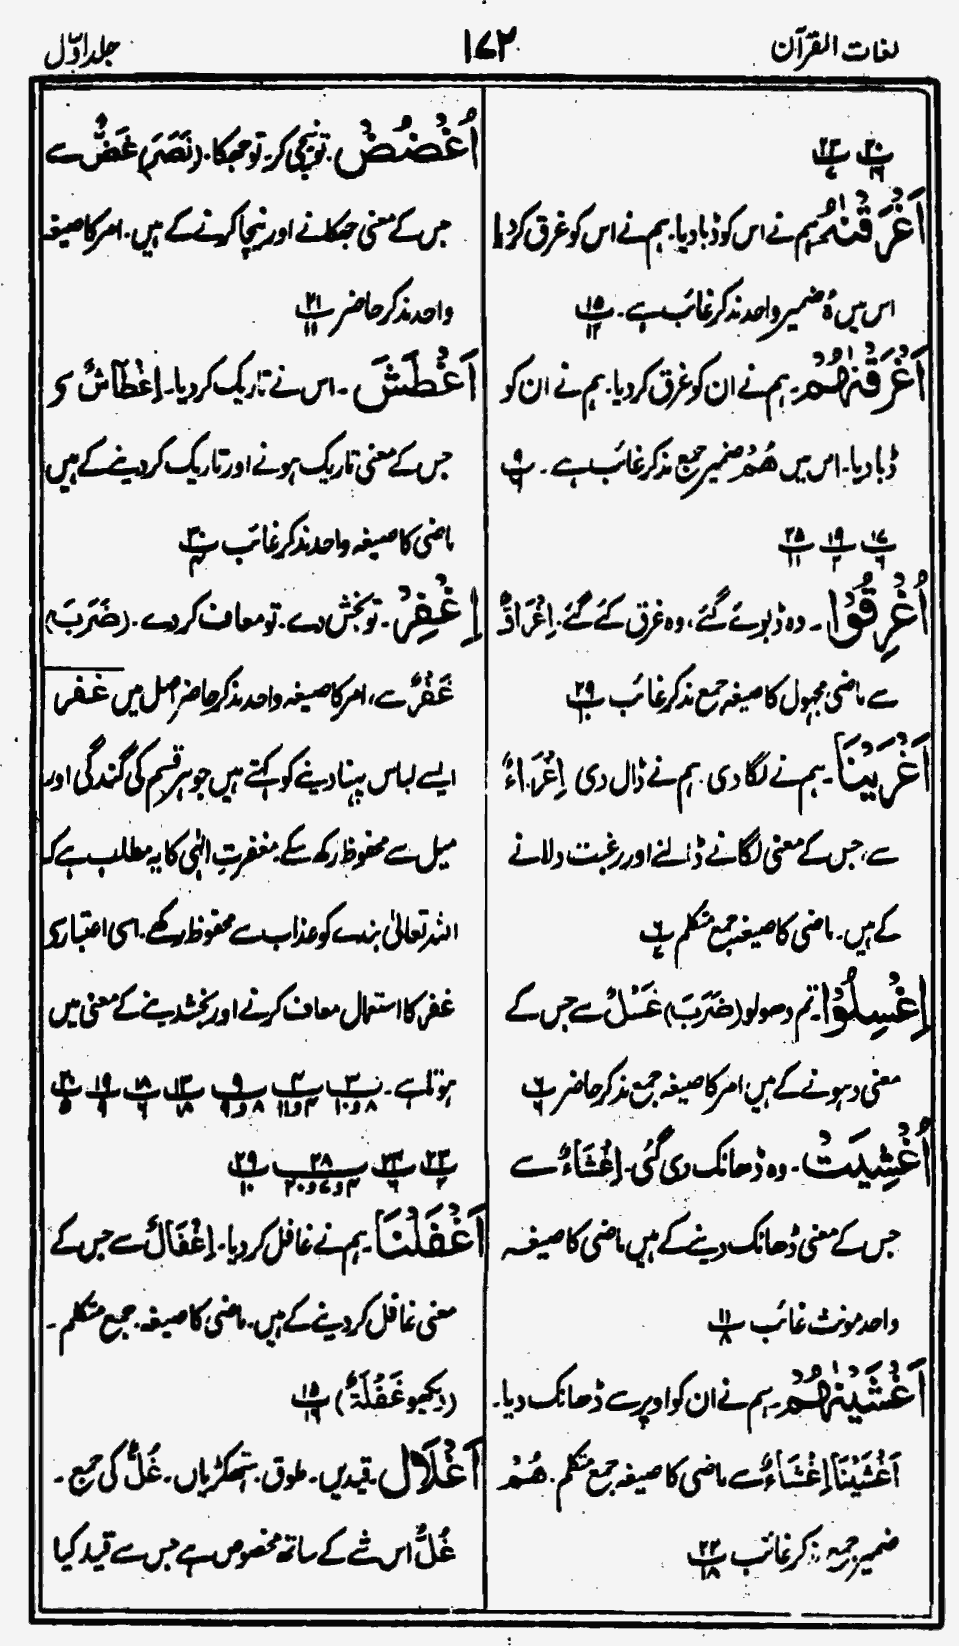 لغات القرآن
۱۷۲
جلد اوّل
پ۲۰/۱۶ پ۲۳/۷
اَغْرَقْنٰهُ۔ ہم نے اس کو ڈبا دیا۔ ہم نے اس کو غرق کر دیا
اس میں ہُ ضمیر واحد مذکر غائب ہے۔ پ۱۵/۱۲
اَغْرَقْنٰهُمْ۔ ہم نے ان کو غرق کر دیا۔ ہم نے ان کو
ڈبا دیا۔ اس میں هُمْ ضمیر جمع مذکر غائب ہے۔ پ۹/۶
پ۱۷/۶ پ۱۹/۲ پ۲۵/۱۱
اُغْرِقُوْا۔ وہ ڈبوئے گئے، وہ غرق کئے گئے۔ اِغْرَاقٌ
سے ماضی مجہول کا صیغہ جمع مذکر غائب پ۲۹/۱۰
اَغْرَيْنَا۔ ہم نے لگا دی۔ ہم نے ڈال دی اِغْرَاءٌ
سے، جس کے معنی لگانے ڈالنے اور رغبت دلانے
کے ہیں۔ ماضی کا صیغہ جمع متکلم پ۶/۷
اِغْسِلُوْا۔ تم دھولو (ضَرَبَ) غَسْلٌ سے جس کے
معنی دہونے کے ہیں امر کا صیغہ جمع مذکر حاضر پ۶/۶
اُغْشِيَتْ۔ وہ ڈھانک دی گئی۔ اِغْشَاءٌ سے
جس کے معنی ڈھانک دینے کے ہیں ماضی کا صیغہ
واحد مونث غائب پ۱۱/۸
اَغْشَيْنٰهُمْ۔ ہم نے ان کو اوپر سے ڈھانک دیا۔
اَغْشَيْنَا اِغْشَاءٌ سے ماضی کا صیغہ جمع متکلم۔ هُمْ
ضمیر جمع مذکر غائب پ۲۲/۱۸
اُغْضُضْ۔ تو نیچی کر۔ تو جھکا۔ (نَصَرَ) غَضٌّ سے
جس کے معنی جھکانے اور نیچا کرنے کے ہیں۔ امر کا صیغہ
واحد مذکر حاضر پ۲۱/۱۱
اَغْطَشَ۔ اس نے تاریک کر دیا۔ اِغْطَاشٌ سے
جس کے معنی تاریک ہونے اور تاریک کر دینے کے ہیں
ماضی کا صیغہ واحد مذکر غائب پ۳۰/۳
اِغْفِرْ۔ تو بخش دے۔ تو معاف کر دے۔ (ضَرَبَ)
غَفْرٌ سے، امر کا صیغہ واحد مذکر حاضر اصل میں غفر
ایسے لباس پہنا دینے کو کہتے ہیں جو ہر قسم کی گندگی اور
میل سے محفوظ رکھ سکے۔ مغفرتِ الٰہی کا یہ مطلب ہے کہ
اللہ تعالیٰ بندے کو عذاب سے محفوظ رکھے۔ اسی اعتبار سے
غفر کا استعمال معاف کرنے اور بخشدینے کے معنی میں
ہوتا ہے۔ پ۳/۸و۱۰ پ۴/۳و۱۱ پ۹/۸و۹ پ۱۳/۱۸ پ۱۸/۶ پ۱۹/۹ پ۲۰/۵
پ۲۳/۲ پ۲۴/۶ پ۲۸/۴و۷و۲۰ پ۲۹/۱۰
اَغْفَلْنَا۔ ہم نے غافل کر دیا۔ اِغْفَالٌ سے جس کے
معنی غافل کر دینے کے ہیں۔ ماضی کا صیغہ۔ جمع متکلم۔
(دیکھو غَفْلَۃٌ) پ۱۵/۱۶
اَغْلَال۔ قیدیں۔ طوق۔ ہتھکڑیاں۔ غُلٌّ کی جمع۔
غُلٌّ اس شے کے ساتھ مخصوص ہے جس سے قید کیا